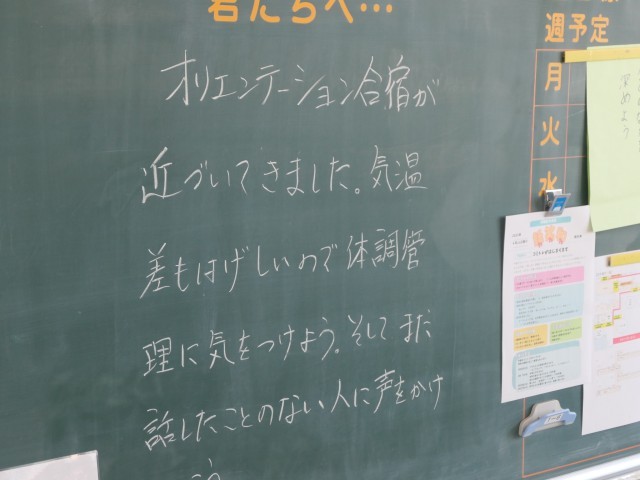 君たちへ…
オリエンテーション合宿が
近づいてきました。気温
差もはげしいので体調管
理に気をつけよう。そして まだ
話したことのない人に声をかけ
週予定
月
火
水